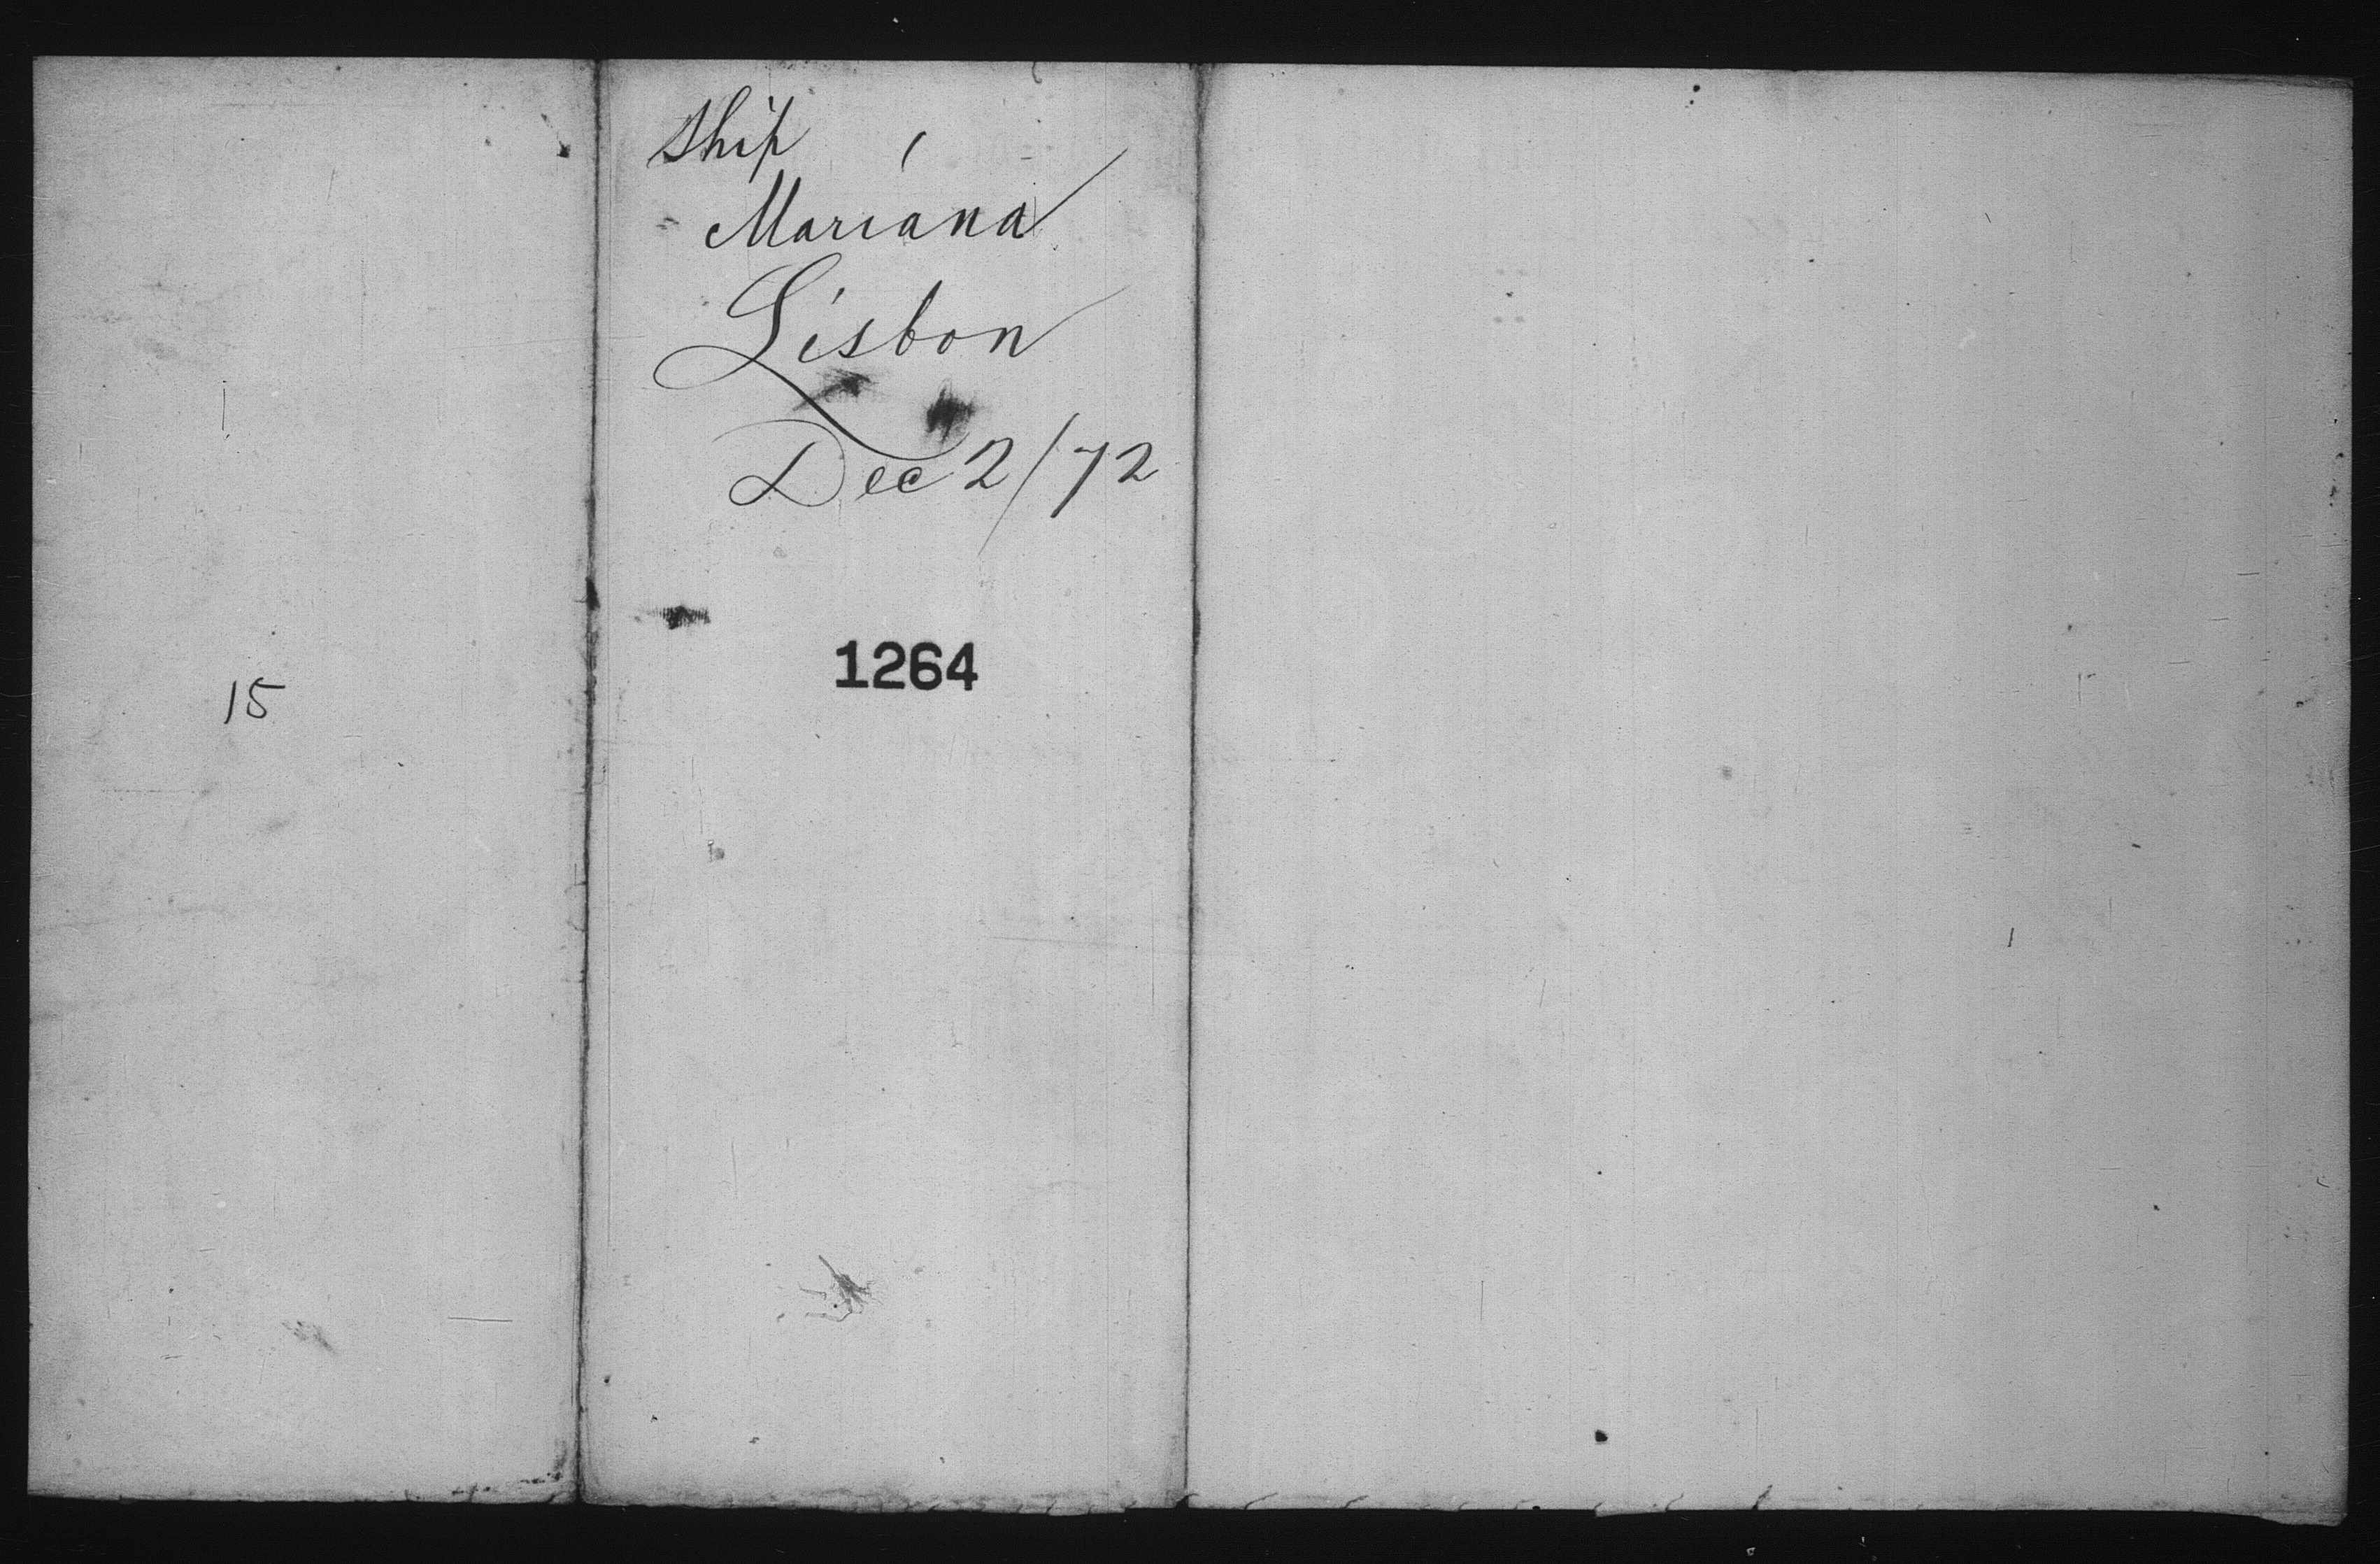 Ship
Mariana
Lisbon
Dec 2/72
1264
15